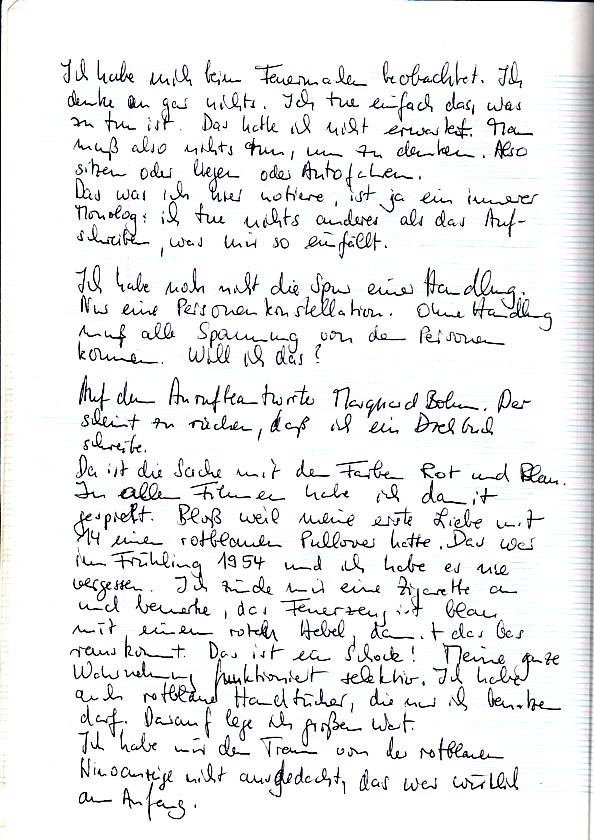 Ich habe mich beim Feuermachen beobachtet. Ich
denke an gar nichts. Ich tue einfach das, was
zu tun ist. Das hatte ich nicht erwartet. Man
muß also nichts tun, um zu denken. Also
sitzen oder liegen oder Autofahren.
Das was ich hier notiere, ist ja ein innerer
Monolog: ich tue nichts anderes als das Auf-
schreiben, was mir so einfällt.
Ich habe noch nicht die Spur einer Handlung.
Nur eine Personenkonstellation. Ohne Handlung
muß alle Spannung von den Personen
kommen. Will ich das?
Auf dem Anrufbeantworter Marquard Bohm. Der
scheint zu riechen, daß ich ein Drehbuch
schreibe.
Da ist die Sache mit den Farben Rot und Blau.
In allen Filmen habe ich damit
gespielt. Bloß weil meine erste Liebe mit
14 einen rotblauen Pullover hatte. Das war
im Frühling 1954 und ich habe es nie
vergessen. Ich zünde mir eine Zigarette an
und bemerke, das Feuerzeug ist blau
mit einem roten Hebel, damit das Gas
rauskommt. Das ist ein Schock! Meine ganze
Wahrnehmung funktioniert selektiv. Ich habe
auch rotblaue Handtücher, die nur ich benutzen
darf. Darauf lege ich großen Wert.
Ich habe mir den Traum von der rotblauen
Kinoanzeige nicht ausgedacht, das war wirklich
am Anfang.